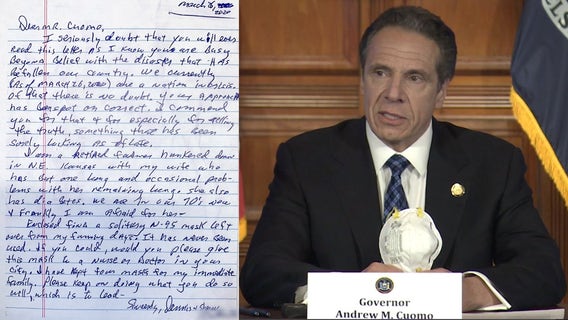 March 26,
2020
Dear Mr. Cuomo,
I seriously doubt that you will ever
read this letter as I know you are busy
beyond belief with the disaster that has
befallen our country. We currently
(as of March 26, 2020) are a nation in crisis.
Of that there is no doubt. Your approach
has been spot on correct. I commend
you for that & for especially for telling
the truth, something that has been
sorely lacking of late.
I am a retired farmer hunkered down
in N.E. Kansas with my wife who
has but one lung and occasional prob-
lems with her remaining lung. She also
has diabetes. We are in our 70's now
& frankly, I am afraid for her.
Enclosed find a solitary N-95 mask left
over from my farming days. It has never been
used. If you could, would you please give
this mask to a nurse or doctor in your
city. I have kept four masks for my immediate
family. Please keep on doing what you do so
well, which is to lead-
Sincerely, Dennis &
Governor
Andrew M. Cuomo